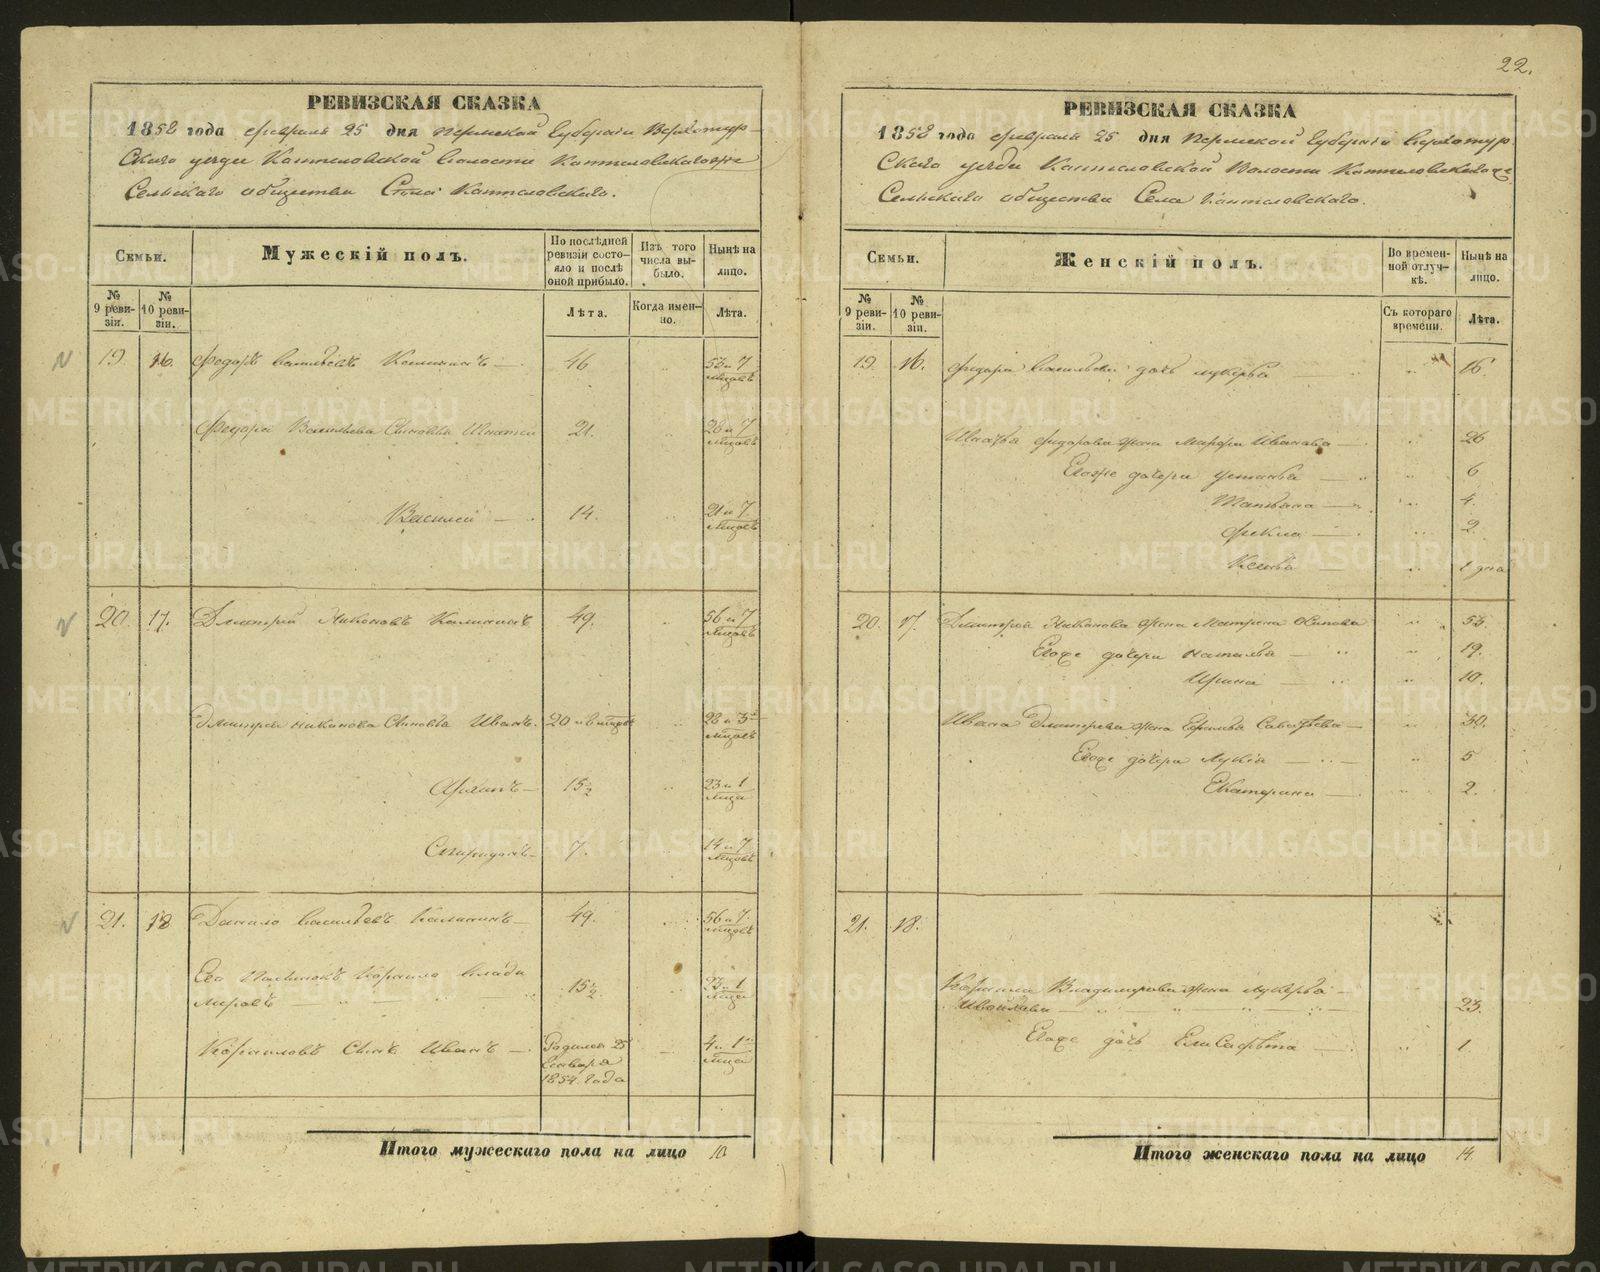 22.
РЕВИЗСКАЯ СКАЗКА
1858 года февраля 25 дня Пермской Губернии Верхотур-
скаго уезда Коптеловской волости Коптеловскагоже
Сельскаго общества Села Коптеловскаго.
Семьи.
Мужескій полъ.
По послѣдней ревизіи состо-
яло и послѣ оной прибыло.
Изъ того числа вы-
было.
Нынѣ на лицо.
№ 9 реви-
зіи.
№ 10 реви-
зіи.
Лѣта.
Когда имен-
но.
Лѣта.
19. 16. Федоръ Васильевъ Калининъ — 46 53 и 7 мѣсяцовъ
Федора Васильева Сыновья Игнатей 21. 28 и 7 мѣсяцовъ
Василей — 14. 21 и 7 мѣсяцовъ
20. 17. Дмитрей Никоновъ Калининъ 49. 56 и 7 мѣсяцовъ
Дмитрея Никонова Сыновья Иванъ. 20 28 и 3 мѣсяцовъ
Архипъ — 15½ 23 и 1 мѣсяца
Спиридонъ — 7. 14 и 7 мѣсяцовъ
21. 18 Данило Васильевъ Калининъ — 49. 56 и 7 мѣсяцовъ
Ево Корнило Влади
мировъ — 15½ 23 и 1 мѣсяца
Корниловъ Сынъ Иванъ — Родился 25 Генваря 1854 года 4 и 1 мѣсяца
Итого мужескаго пола на лицо 10.
РЕВИЗСКАЯ СКАЗКА
1858 года февраля 25 дня Пермской Губернии Верхотур
скаго уезда Коптеловской Волости Коптеловскагоже
Сельскаго общества Села Коптеловскаго.
Семьи.
Женскій полъ.
Во времен-
ной отлуч-
кѣ.
Нынѣ на лицо.
№ 9 реви-
зіи.
№ 10 реви-
зіи.
Съ котораго времени.
Лѣта.
19. 16. Федора Васильева дочь Лукерья — 16.
Игнатья Федорова жена Марфа Иванова — 26
Егоже дочери Устинья — 6
Татьяна — 4.
Фекла — 2.
20. 17. Дмитрея Никонова жена Матрена Осипова 53.
Егоже дочери Наталья — 19.
Ирина — 10.
Ивана Дмитрева жена — 30.
Егоже дочери Лукия — 5
Екатерина — 2.
21. 18.
Корнила Владимирова жена Лукерья —
23.
Егоже дочь Елисафета — 1.
Итого женскаго пола на лицо 14.
METRIKI.GASO-URAL.RU